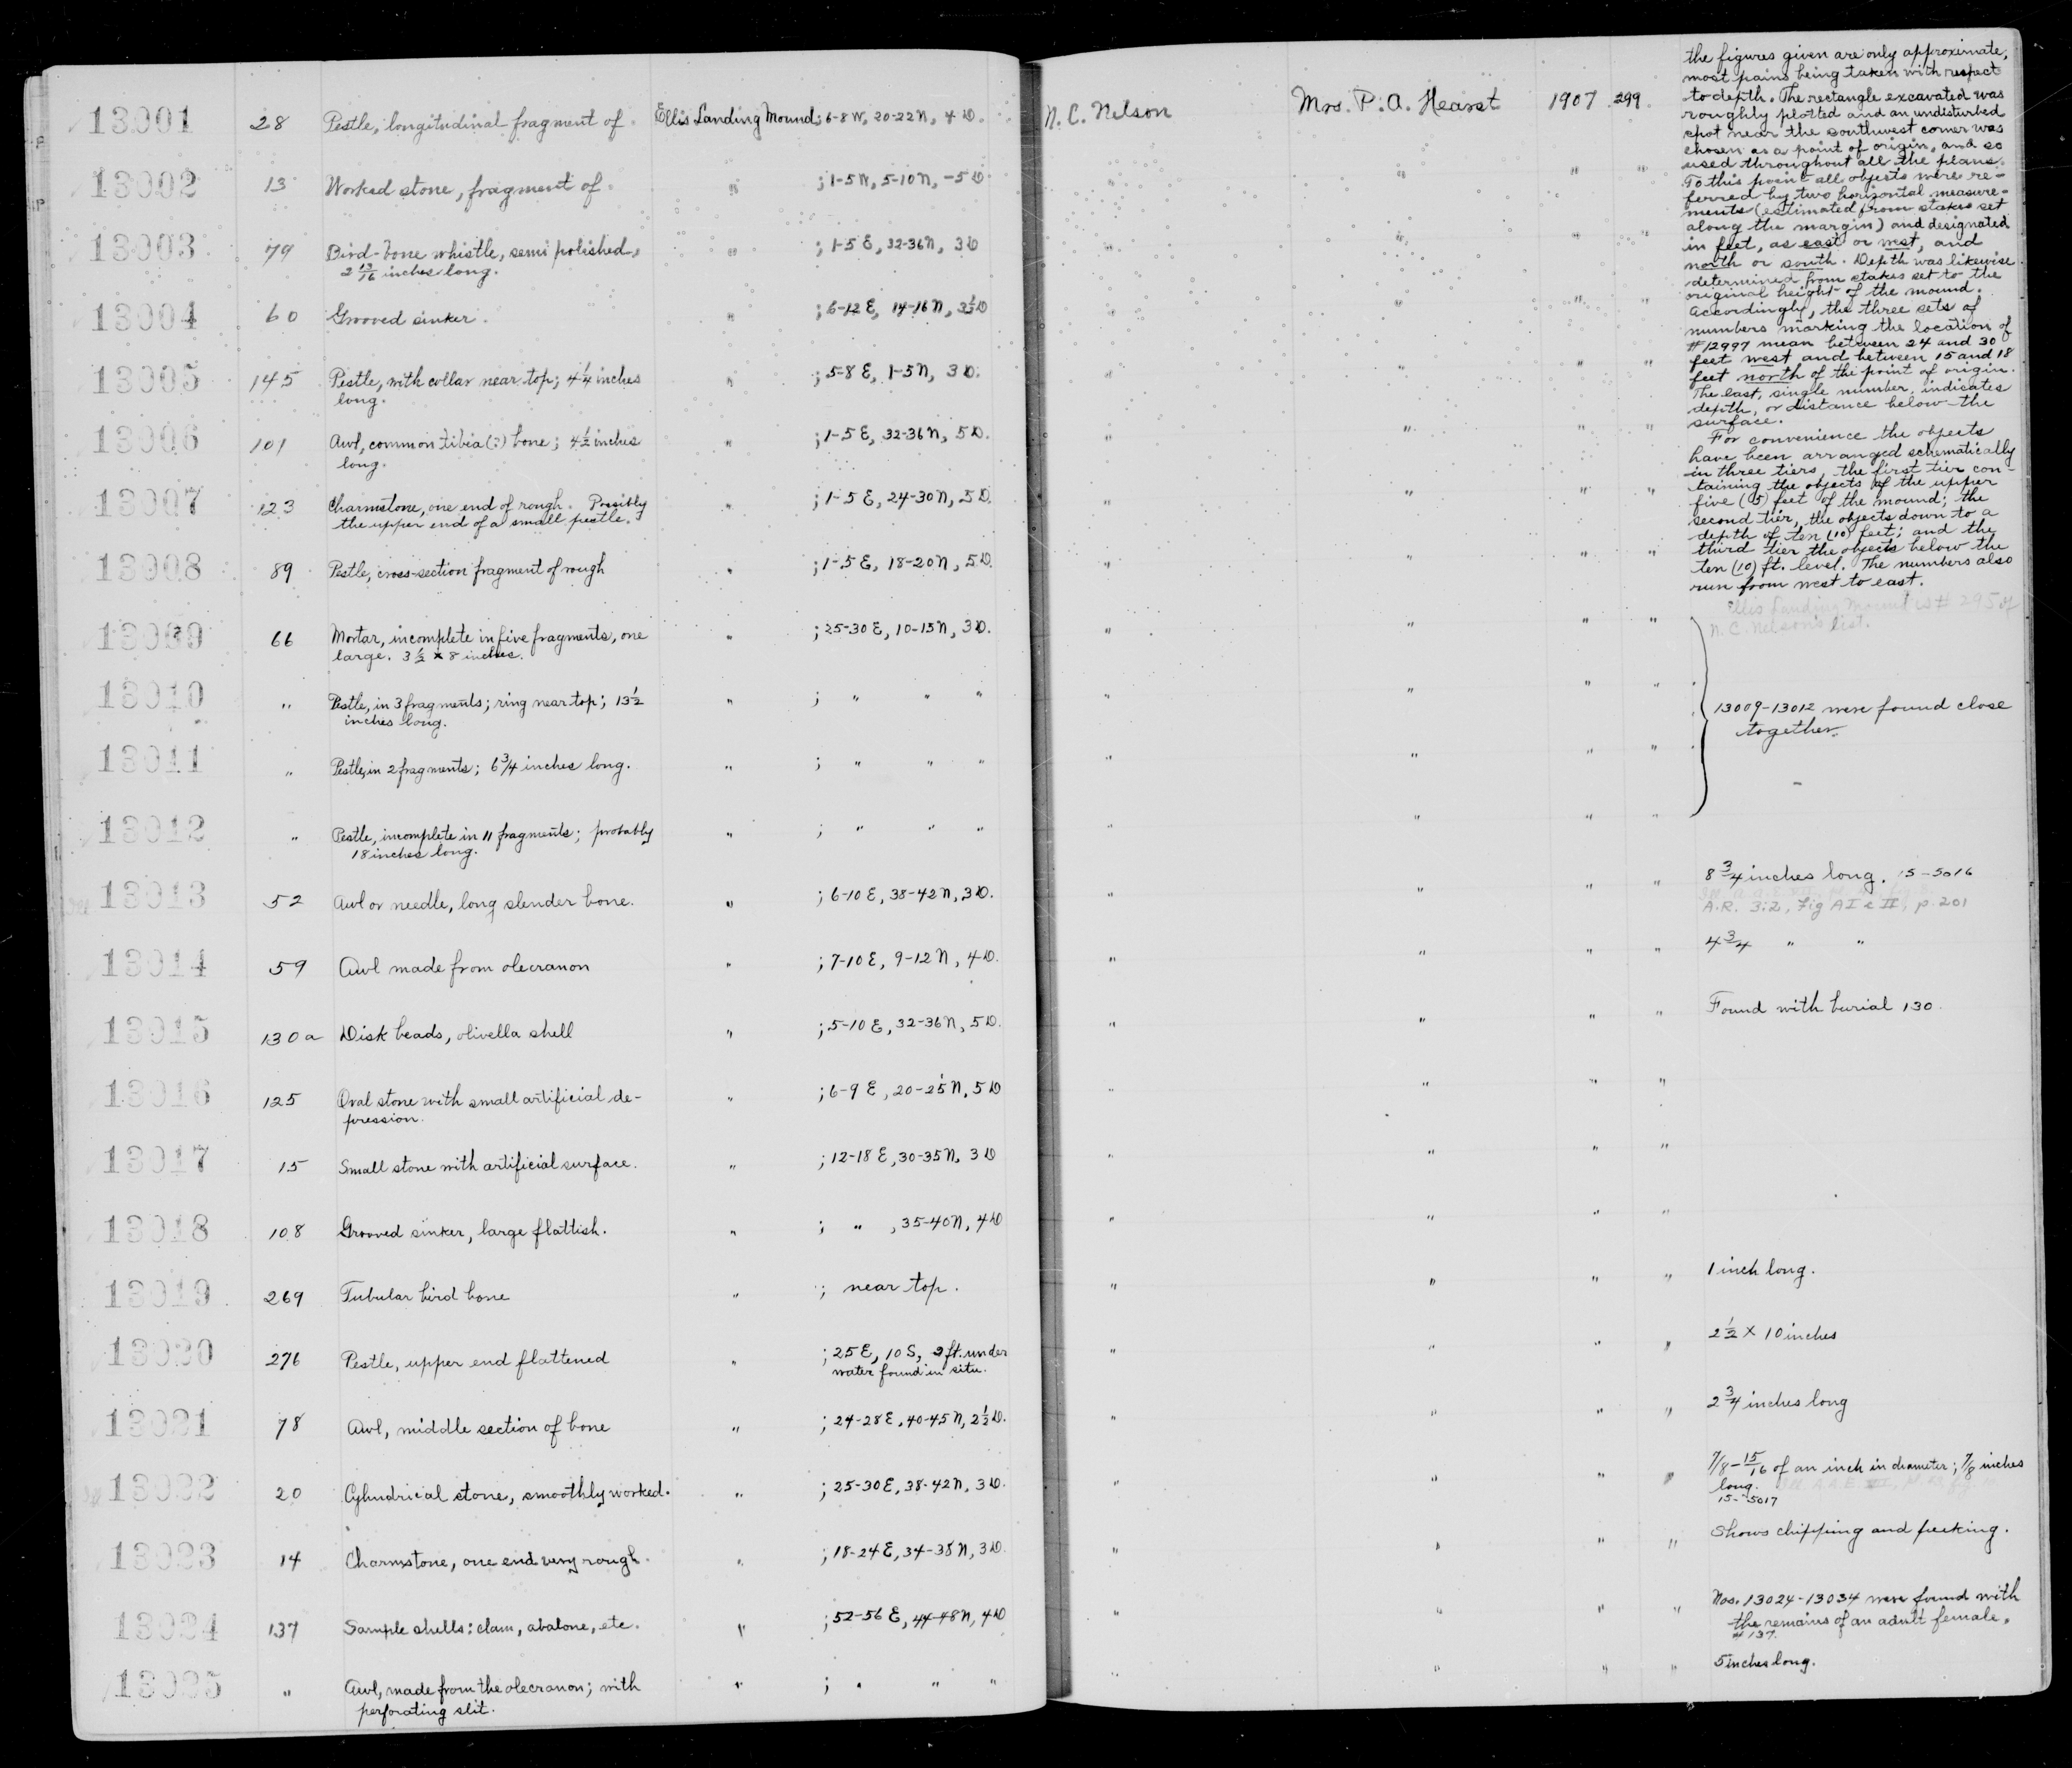 13001 28 Pestle, longitudinal fragment of. Ellis Landing Mound; 6-8 W, 20-22 N, 4 D. N. C. Nelson Mrs. P. A. Hearst 1907 299
13002 13 Worked stone, fragment of. " ; 1-5 W, 5-10 N, -5 D. " " " "
13003 79 Bird-bone whistle, semi polished, " ; 1-5 E, 32-36 N, 3 D " " " "
2 13/16 inches long.
13004 60 Grooved sinker. " ; 6-12 E, 14-16 N, 3½ D " " " "
13005 145 Pestle, with collar near top; 4¼ inches " ; 5-8 E, 1-5 N, 3 D. " " " "
long.
13006 101 Awl, common tibia (?) bone; 4½ inches " ; 1-5 E, 32-36 N, 5 D. " " " "
long.
13007 123 Charmstone, one end of rough. Possibly " ; 1-5 E, 24-30 N, 5 D. " " " "
the upper end of a small pestle.
13008 89 Pestle, cross-section fragment of rough " ; 1-5 E, 18-20 N, 5 D. " " " "
13009 66 Mortar, incomplete in five fragments, one " ; 25-30 E, 10-15 N, 3 D. " " " "
large. 3½ x 8 inches.
13010 " Pestle, in 3 fragments; ring near top; 13½ " ; " " " " " " "
inches long.
13011 " Pestle, in 2 fragments; 6¾ inches long. " ; " " " " " " "
13012 " Pestle, incomplete in 11 fragments; probably " ; " " " " " " "
18 inches long.
13013 52 Awl or needle, long slender bone. " ; 6-10 E, 38-42 N, 3 D. " " " "
13014 59 Awl made from olecranon " ; 7-10 E, 9-12 N, 4 D. " " " "
13015 130a Disk beads, olivella shell " ; 5-10 E, 32-36 N, 5 D. " " " "
13016 125 Oval stone with small artificial de- " ; 6-9 E, 20-25 N, 5 D " " " "
pression.
13017 15 Small stone with artificial surface. " ; 12-18 E, 30-35 N, 3 D " " " "
13018 108 Grooved sinker, large flattish. " ; " , 35-40 N, 4 D " " " "
13019 269 Tubular bird bone " ; near top. " " " "
13020 276 Pestle, upper end flattened " ; 25 E, 10 S, 2 ft. under " " " "
water found in situ.
13021 78 Awl, middle section of bone " ; 24-28 E, 40-45 N, 2½ D. " " " "
13022 20 Cylindrical stone, smoothly worked. " ; 25-30 E, 38-42 N, 3 D. " " " "
13023 14 Charmstone, one end very rough. " ; 18-24 E, 34-38 N, 3 D. " " " "
13024 137 Sample shells: clam, abalone, etc. " ; 52-56 E, 44-48 N, 4 D " " " "
13025 " Awl, made from the olecranon; with " ; " " " " " " "
perforating slit.
the figures given are only approximate,
most pains being taken with respect
to depth. The rectangle excavated was
roughly plotted and an undisturbed
spot near the southwest corner was
chosen as a point of origin, and so
used throughout all the plans.
To this point all objects were re-
ferred by two horizontal measure-
ments (estimated from stakes set
along the margin) and designated
in feet, as east or west, and
north or south. Depth was likewise
determined from stakes set to the
original height of the mound.
Accordingly, the three sets of
numbers marking the location of
#12997 mean between 24 and 30
feet west and between 15 and 18
feet north of the point of origin.
The last, single number, indicates
depth, or distance below the
surface.
For convenience the objects
have been arranged schematically
in three tiers, the first tier con-
taining the objects of the upper
five (5) feet of the mound; the
second tier, the objects down to a
depth of ten (10) feet; and the
third tier the objects below the
ten (10) ft. level. The numbers also
run from west to east.
Ellis Landing Mound is # 295 of
N. C. Nelson's list.
13009-13012 were found close
together.
8¾ inches long. 15-5016
A.R. 3:2, Fig A I & II, p. 201
4¾ " "
Found with burial 130
1 inch long.
2½ x 10 inches
2¾ inches long
7/8 - 15/16 of an inch in diameter; 7/8 inches
long.
15-5017
Shows chipping and pecking.
Nos. 13024-13034 were found with
the remains of an adult female,
#137.
5 inches long.